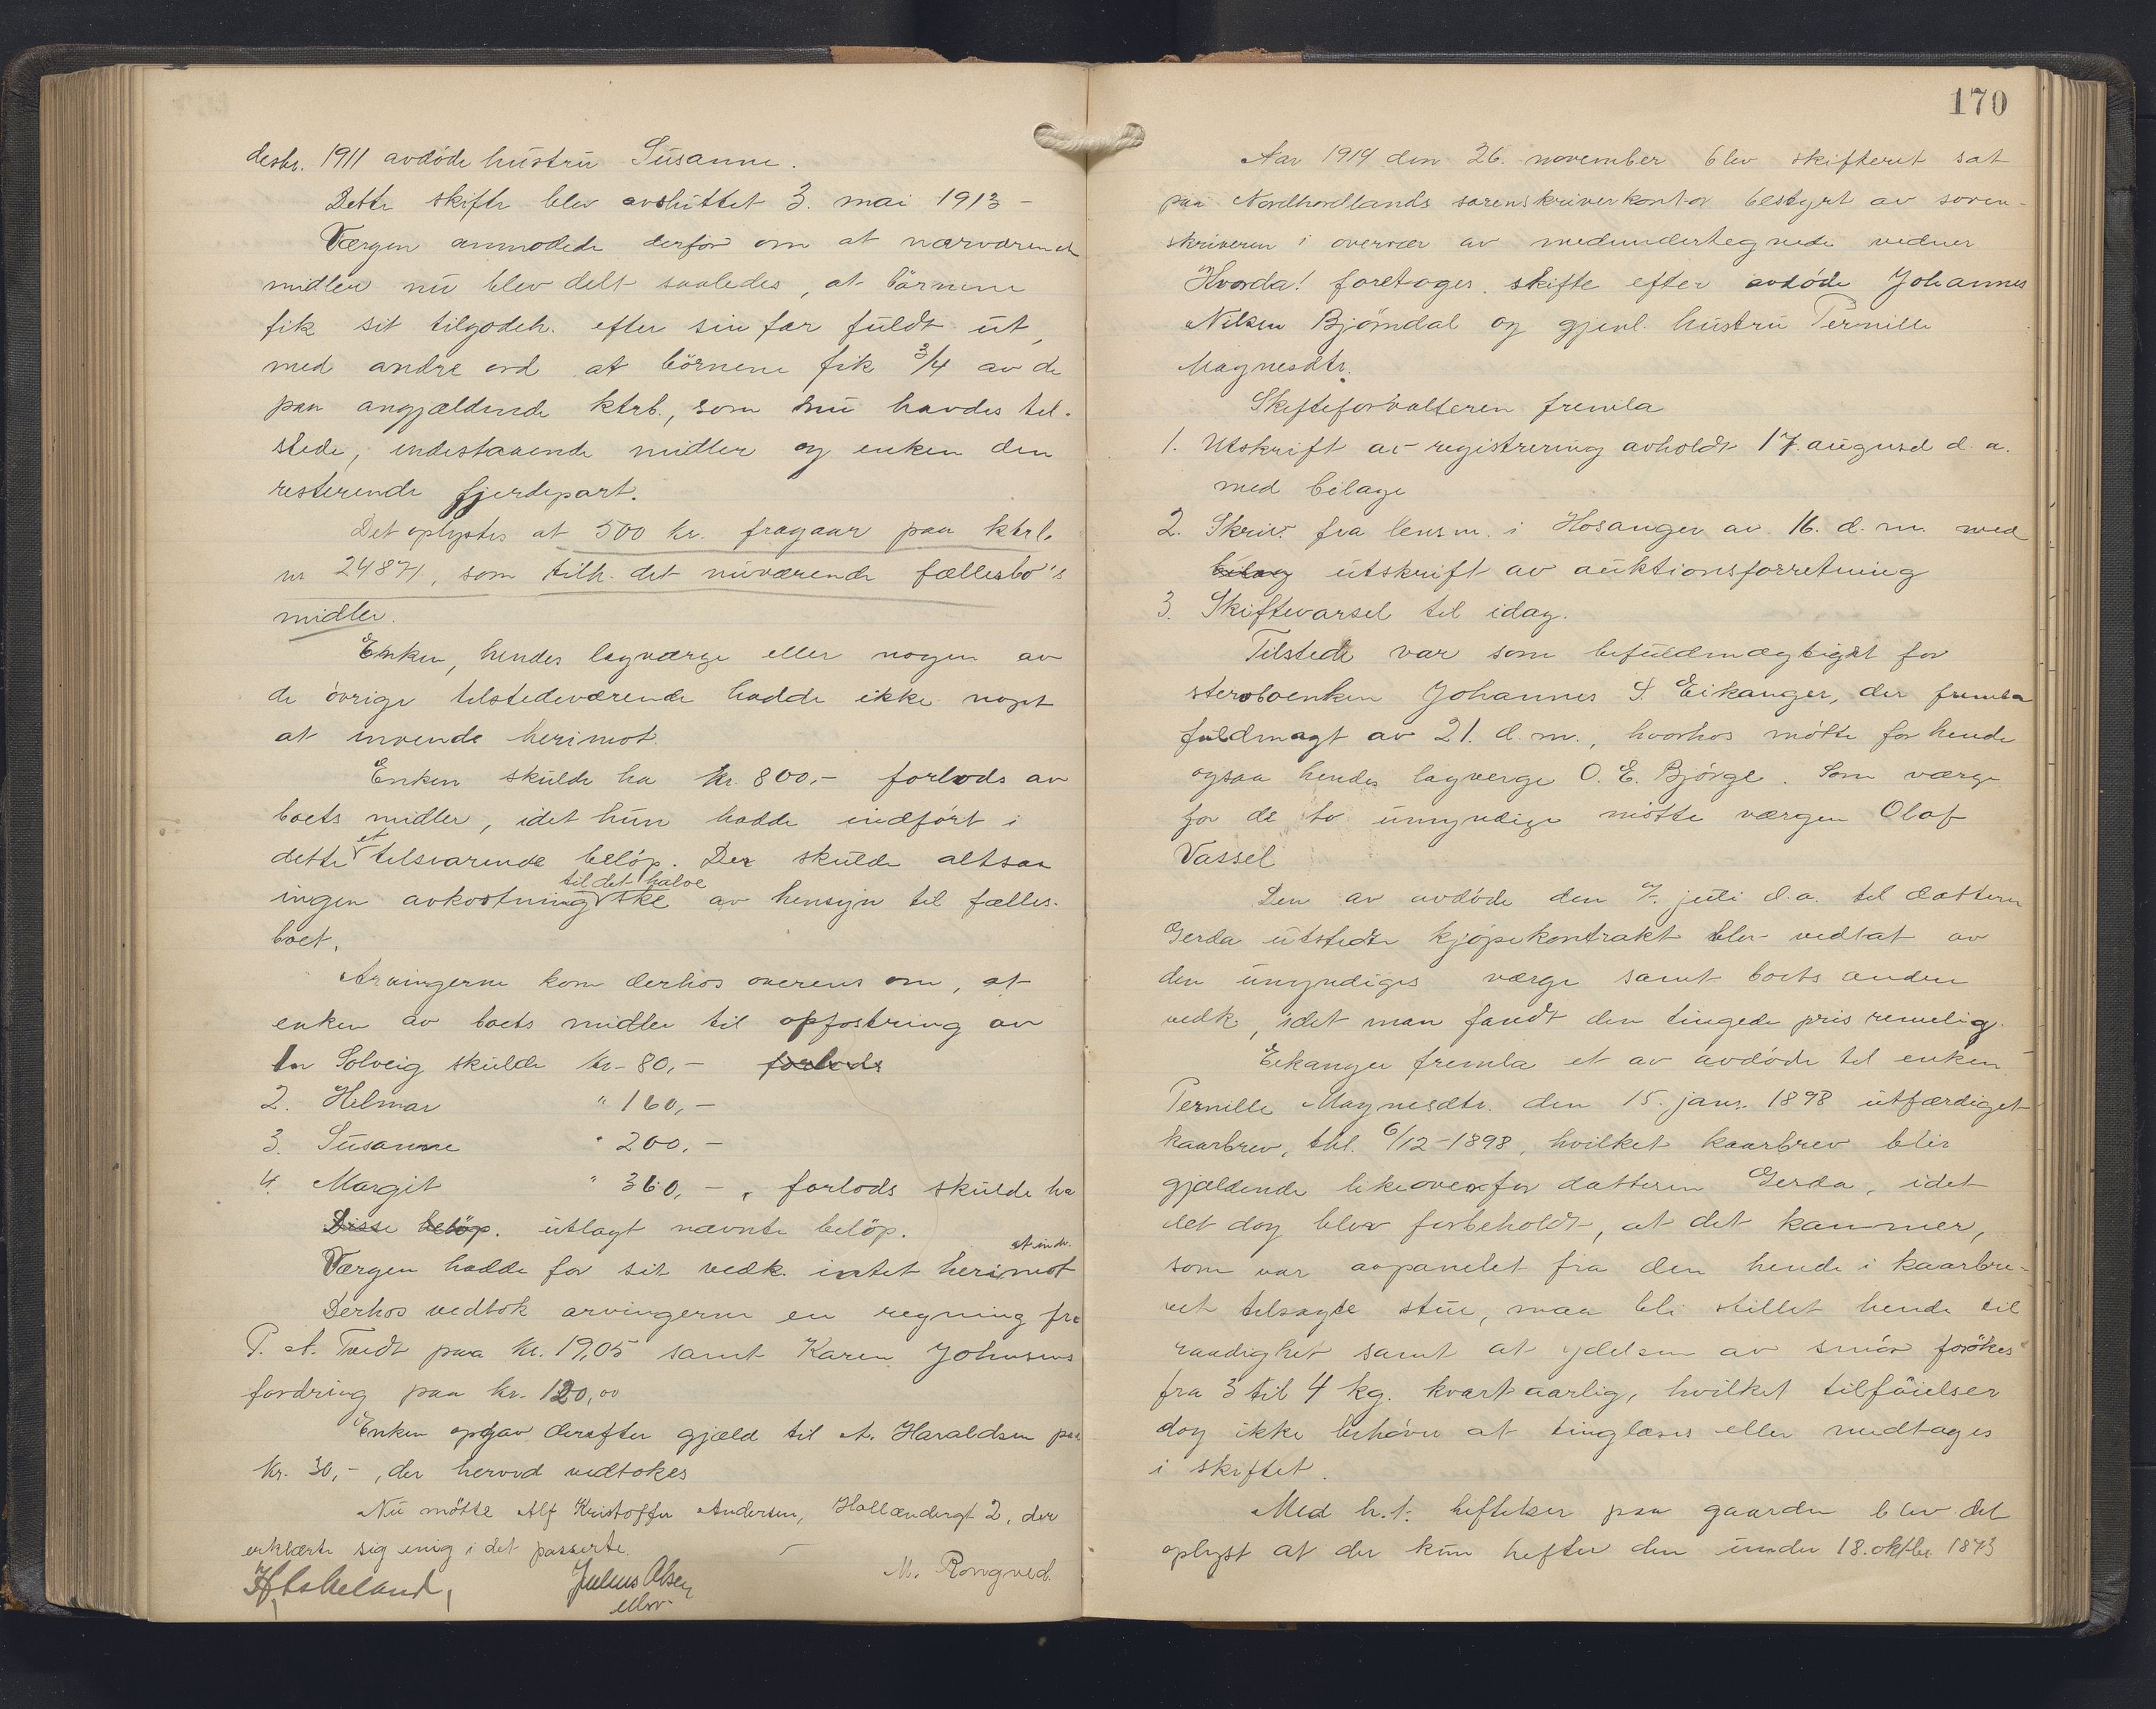 desbr. 1911 avdöde hustru Susanne.
Dette skifte blev avsluttet 3. mai 1913 -
Værgen anmodede derfor om at nærværende
midler nu blev delt saaledes, at börnene
fik sit tilgodeh. efter sin far fuldt ut,
med andre ord at börnene fik 3/4 av de
paa angjældende ktrb., som nu havdes til-
stede, indestaaende midler og enken den
resterende fjerdepart.
Det oplystes at 500 kr. fragaar paa ktrb.
nr 24871, som tilh. det nuværende fællesbo's
midler.
Enken, hendes lagværge eller nogen av
de övrige tilstedeværende hadde ikke noget
at invende herimot.
Enken skulde ha kr. 800,- forlods av
boets midler, idet hun hadde indfört i
dette et tilsvarende belöp. Der skulde altsaa
ingen avkortning til det halve ske av hensyn til fælles-
boet.
Arvingerne kom derhos overens om, at
enken av boets midler til opfostring av
1 Solveig skulde kr - 80,- forlods
2. Helmar " 160,-
3. Susanne " 200,-
4. Margit " 360,-, forlods skulde ha
Disse belöp. utlagt nævnte belöp.
Værgen hadde for sit vedk. intet herimot at indv.
Derhos vedtok arvingerne en regning fra
P. A. Tvedt paa kr. 19,05 samt Karen Johnsens
fordring paa kr. 120,00
Enken opgav derefter gjæld til A. Haraldsen paa
kr. 30,-, der herved vedtokes
Nu mötte Alf Kristoffer Andersen, Hollændergt 2, der
erklærte sig enig i det passerte.
Julius Olsen M. Rongved.
170
Aar 1914 den 26. november blev skifteret sat
paa Nordhordlands sorenskriverkontor bestyrt av soren-
skriveren i overvær av medundertegnede vidner
Hvorda! foretoges skifte efter avdöde Johannes
Nilsen Björndal og gjenl. hustru Pernille
Magnesdtr.
Skifteforvalteren fremla
1. Utskrift av registrering avholdt 17. august d. a.
med bilage
2. Skriv. fra lensm. i Hosanger av 16. d. m. med
bilag utskrift av auktionsforretning
3. Skiftevarsel til idag.
Tilstede var som befuldmægtiget for
stervboenken Johannes S. Eikanger, der fremla
fuldmagt av 21. d. m., hvorhos mötte for hende
ogsaa hendes lagverge O. E. Bjørge. Som værge
for de to umyndige mötte værgen Olaf
Vassel
Den av avdöde den 7. juli d. a. til datteren
Gerda utstedte kjöpekontrakt blev vedtat av
den umyndiges værge samt boets anden
vedk., idet man fandt den tingede pris rimelig.
Eikanger fremla et av avdöde til enken
Pernille Magnesdtr. den 15. janr. 1898 utfærdiget
kaarbrev, thl. 6/12-1898, hvilket kaarbrev blir
gjældende likeoverfor datteren Gerda, idet
det dog blev forbeholdt, at det kammer,
som var avpanelet fra den hende i kaarbre-
vet tilsagte stue, maa bli stillet hende til
raadighet samt at ydelsen av smör forökes
fra 3 til 4 kg. kvartaarlig, hvilket tilföielser
dog ikke behöver at tinglæses eller medtages
i skiftet.
Med h. t. heftelser paa gaarden blev det
oplyst at der kun hefter den under 18. oktbr 1873